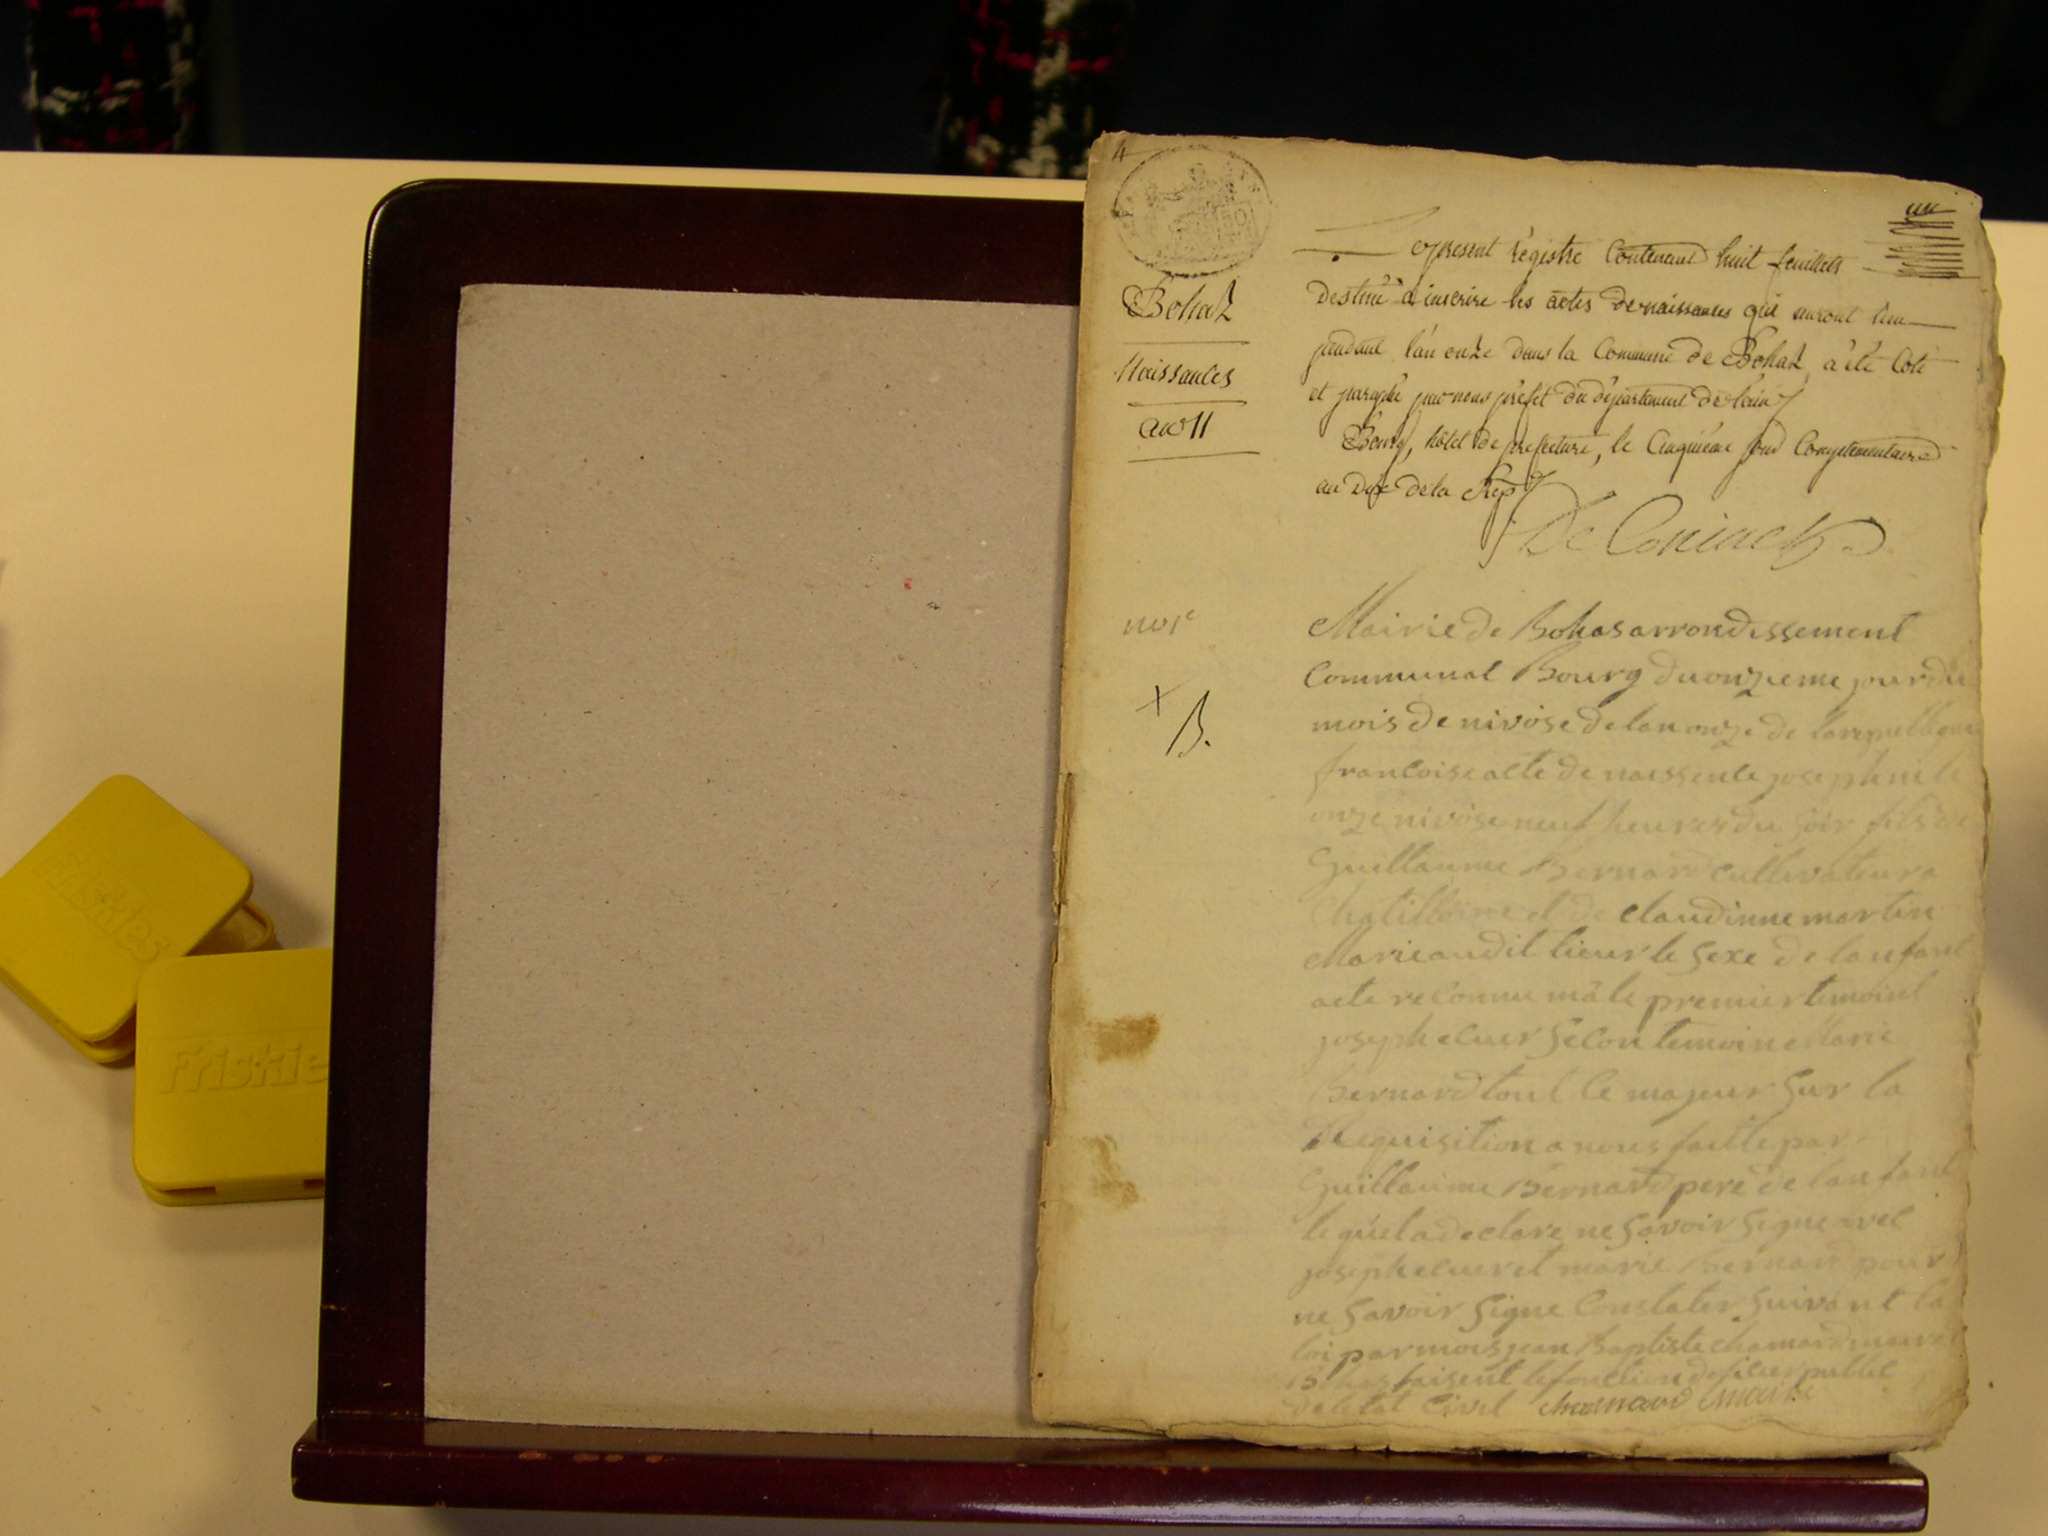 4
un
Le present régistre Contenant huit feuillets
Bohaz
Destiné à inscrire les actes de naissances qui auront lieu
Naissances
pendant l'an onze dans la Commune de Bohaz, a été Coté
et paraphé par nous préfet du département de l'ain
an 11
Bourg, hôtel de préfecture, le Cinquième jour Complémentaire
an Dix de la Rep
De Coninck
no 1er
Mairie de Bohas arrondissement
Communal Bourg du onzieme jour du
X
B.
mois de nivóse de lan onze de la republique
francoise acte de naissence joseph né le
onze nivóse neuf heures du soir fils de
Guillaume Bernard cultivateur a
Chatillonne et de claudinne martin
Marie audit lieux le sexe de lanfant
acte reconnu mâle premier temoint
joseph ecuer secon temoine Marie
Bernard tout le majeur sur la
Requisition a nous faitte par
Guillaume Bernard pere de lanfant
le quel a declare ne savoir signe avec
joseph ecuer et marie Bernard pour
ne savoir signe Constater suivant la
loi par mois jean Baptiste chamard maire
Bohas faisent le fonction doficier public
de letat Civil chamard maire
Friskies
Friskie